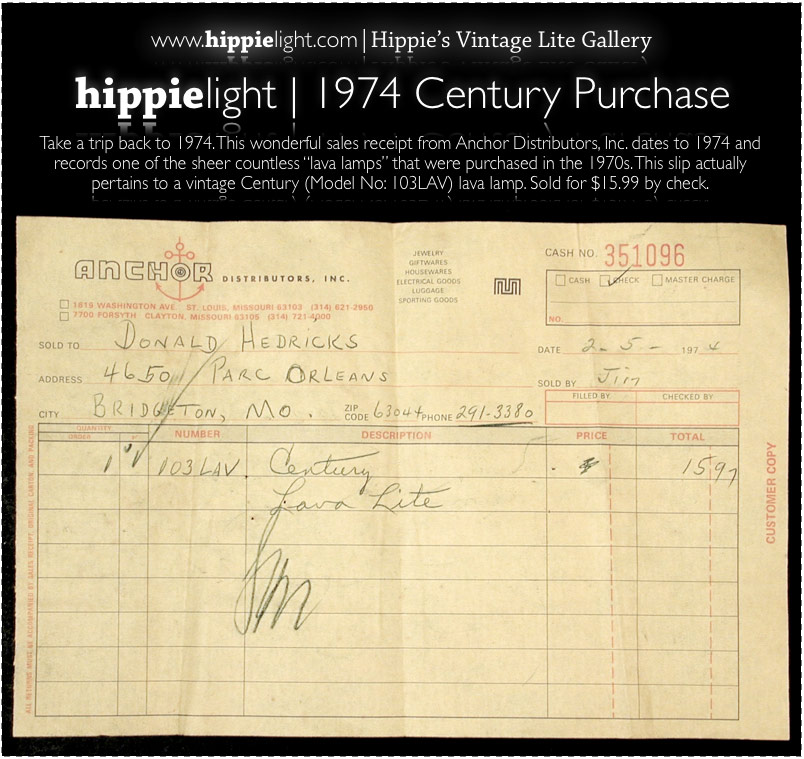 www.hippielight.com | Hippie's Vintage Lite Gallery
hippielight | 1974 Century Purchase
Take a trip back to 1974. This wonderful sales receipt from Anchor Distributors, Inc. dates to 1974 and
records one of the sheer countless "lava lamps" that were purchased in the 1970s. This slip actually
pertains to a vintage Century (Model No: 103LAV) lava lamp. Sold for $15.99 by check.
ANCHOR DISTRIBUTORS, INC.
1619 WASHINGTON AVE. ST. LOUIS, MISSOURI 63103 (314) 621-2950
7700 FORSYTH CLAYTON, MISSOURI 63105 (314) 721-4000
JEWELRY
GIFTWARES
HOUSEWARES
ELECTRICAL GOODS
LUGGAGE
SPORTING GOODS
CASH NO. 351096
CASH CHECK MASTER CHARGE
NO.
SOLD TO DONALD HEDRICKS
DATE 2-5- 1974
ADDRESS 4650 PARC ORLEANS
SOLD BY Jim
FILLED BY CHECKED BY
CITY BRIDGETON, MO. ZIP CODE 63044 PHONE 291-3380
QUANTITY
ORDER NUMBER DESCRIPTION PRICE TOTAL
1 103LAV Century 1597
Lava Lite
CUSTOMER COPY
ALL RETURNS MUST BE ACCOMPANIED BY SALES RECEIPT, ORIGINAL CARTON, AND PACKING